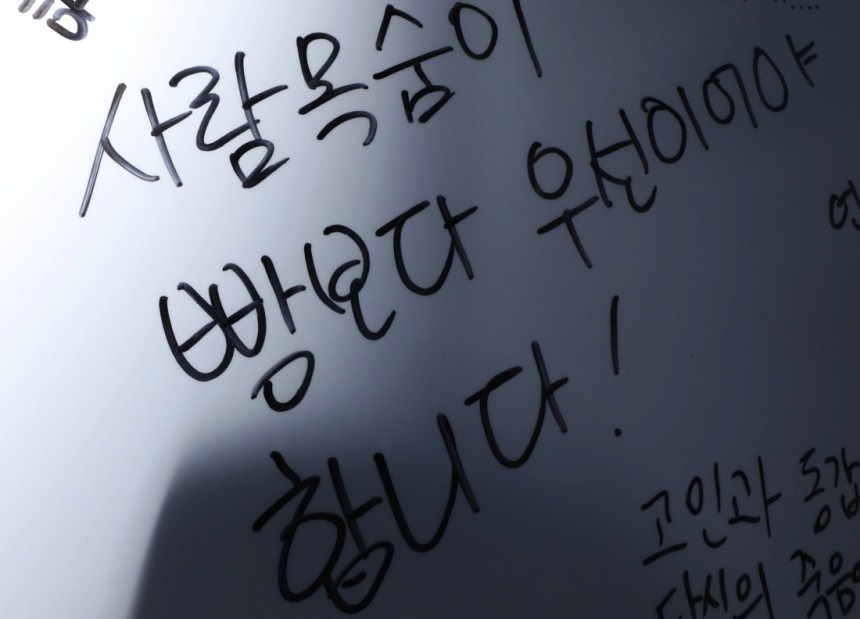 사람 목숨이
빵보다 우선이어야
합니다!
고인과 동갑
당신의 죽음